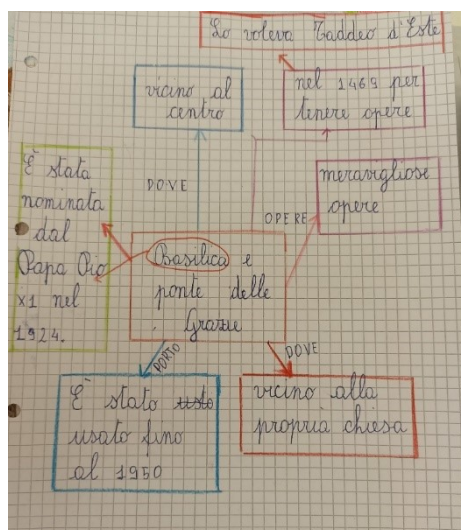 Lo voleva Taddeo d'Este
vicino al
centro
nel 1469 per
tenere opere
È stata
nominata
dal
Papa Pio
x1 nel
1924.
DOVE
OPERE
meravigliose
opere
Basilica e
ponte delle
Grazie
PORTO
DOVE
È stato usto
usato fino
al 1950
vicino alla
propria chiesa